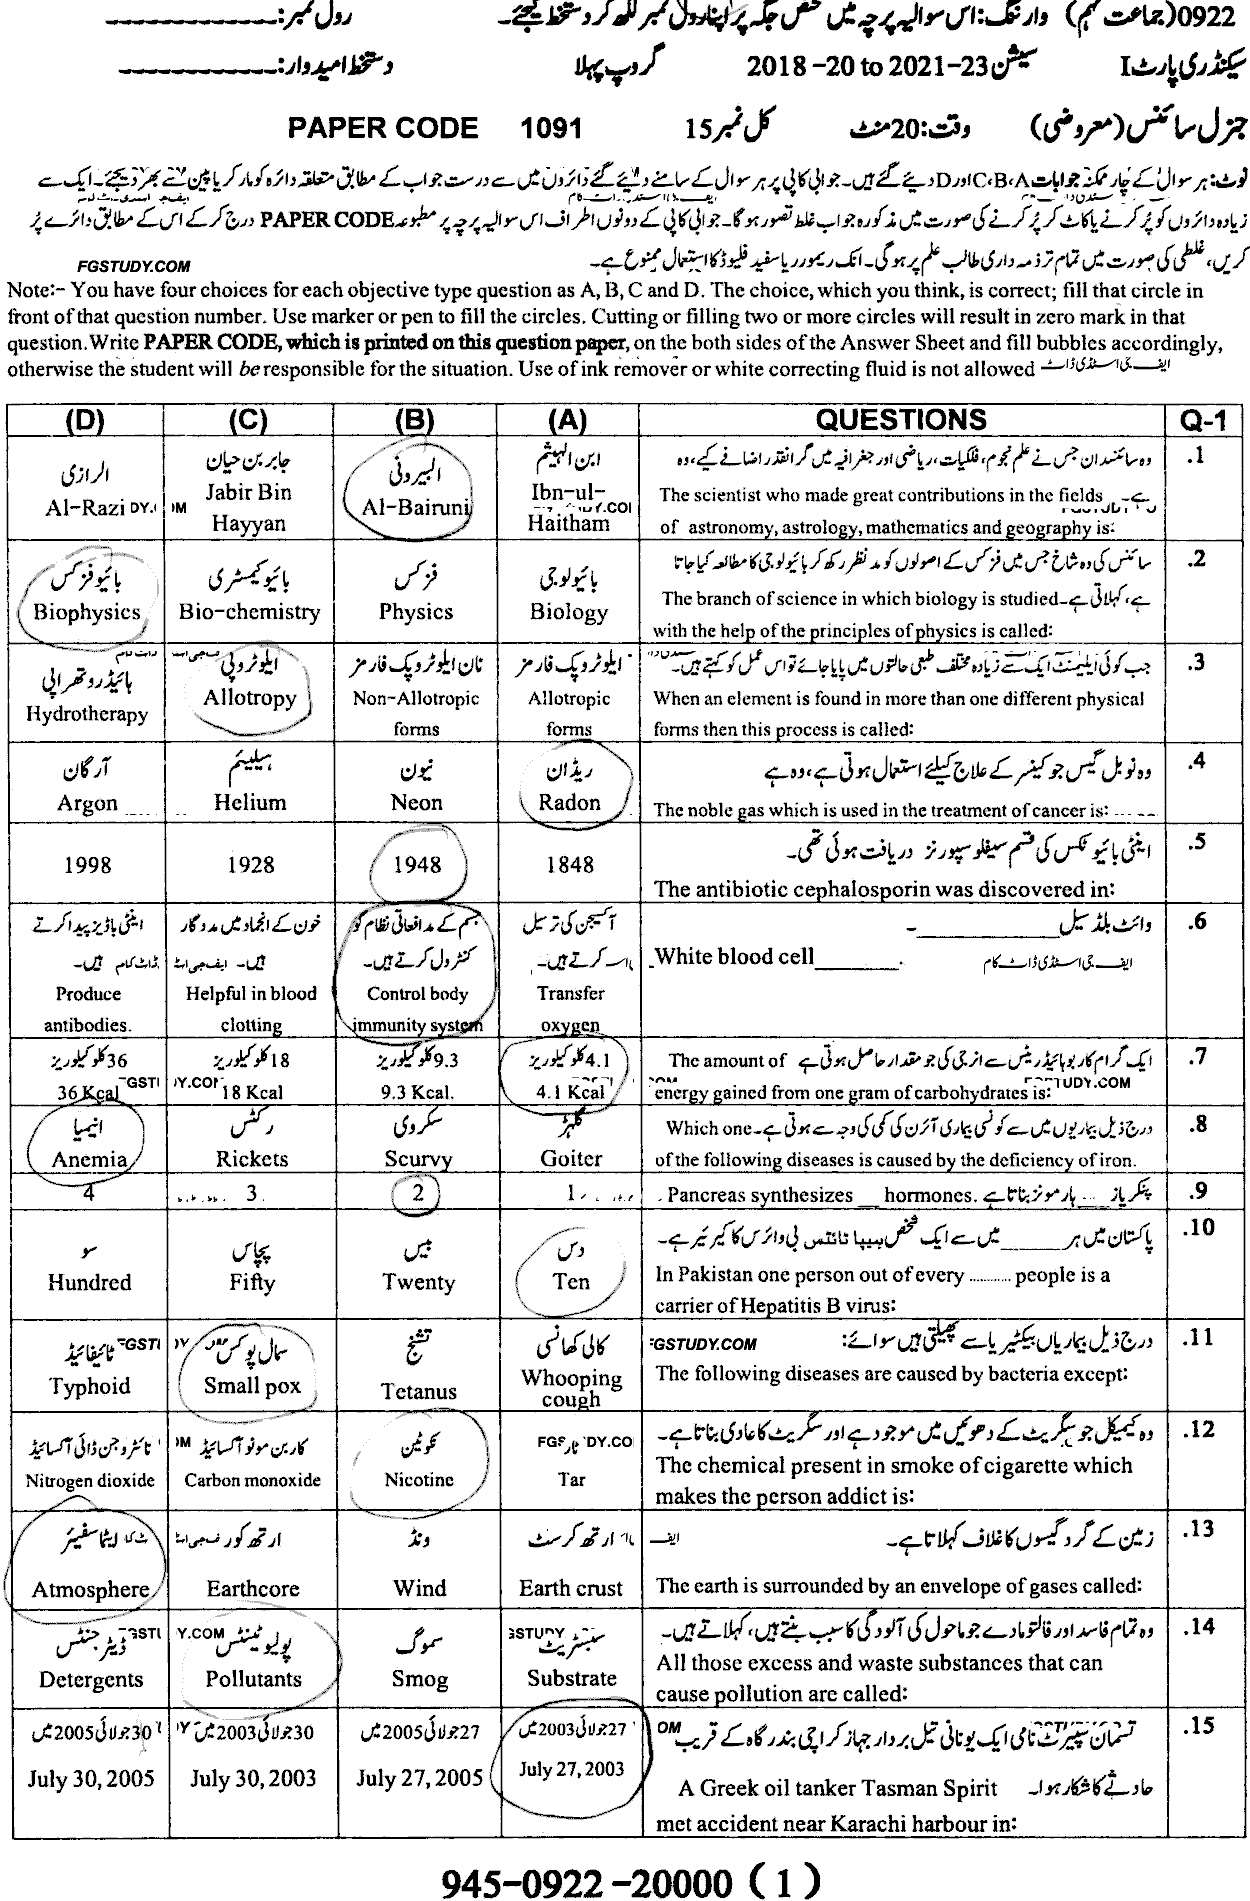 0922(جماعت نہم) وارننگ: اس سوالیہ پرچہ میں مختص جگہ پر اپنا رول نمبر لکھ کر دستخط کیجئے۔ رول نمبر:
سیکنڈری پارٹ I سیشن 2018-20 to 2021-23 گروپ پہلا دستخط امیدوار:
جنرل سائنس (معروضی) وقت: 20 منٹ کل نمبر 15 PAPER CODE 1091
نوٹ: ہر سوال کے چار ممکنہ جوابات C،B،A اور D دیئے گئے ہیں۔ جوابی کاپی پر ہر سوال کے سامنے دیئے گئے دائروں میں سے درست جواب کے مطابق متعلقہ دائرہ کو مارکر یا پین سے بھر دیجئے۔ ایک سے
زیادہ دائروں کو پُر کرنے یا کاٹ کر پُر کرنے کی صورت میں مذکورہ جواب غلط تصور ہوگا۔ جوابی کاپی کے دونوں اطراف اس سوالیہ پرچہ پر مطبوعہ PAPER CODE درج کر کے اس کے مطابق دائرے پُر
کریں، غلطی کی صورت میں تمام تر ذمہ داری طالب علم پر ہوگی۔ انک ریمور یا سفید فلیوڈ کا استعمال ممنوع ہے۔
FGSTUDY.COM
Note:- You have four choices for each objective type question as A, B, C and D. The choice, which you think, is correct; fill that circle in
front of that question number. Use marker or pen to fill the circles. Cutting or filling two or more circles will result in zero mark in that
question. Write PAPER CODE, which is printed on this question paper, on the both sides of the Answer Sheet and fill bubbles accordingly,
otherwise the student will be responsible for the situation. Use of ink remover or white correcting fluid is not allowed ایف جی اسٹڈی ڈاٹ
(D) (C) (B) (A) QUESTIONS Q-1
.1 وہ سائنسدان جس نے علم نجوم، فلکیات، ریاضی اور جغرافیہ میں گرانقدر اضافے کیے، وہ
The scientist who made great contributions in the fields ہے۔
of astronomy, astrology, mathematics and geography is:
ابن الہیثم
Ibn-ul-
Haitham
البیرونی
Al-Bairuni
جابر بن حیان
Jabir Bin
Hayyan
الرازی
Al-Razi
.2 سائنس کی وہ شاخ جس میں فزکس کے اصولوں کو مدنظر رکھ کر بائیولوجی کا مطالعہ کیا جاتا
The branch of science in which biology is studied ہے، کہلاتی ہے۔
with the help of the principles of physics is called:
بائیولوجی
Biology
فزکس
Physics
بائیو کیمسٹری
Bio-chemistry
بائیوفزکس
Biophysics
.3 جب کوئی ایلیمنٹ ایک سے زیادہ مختلف طبعی حالتوں میں پایا جائے تو اس عمل کو کہتے ہیں۔
When an element is found in more than one different physical
forms then this process is called:
ایلوٹروپک فارمز
Allotropic
forms
نان ایلوٹروپک فارمز
Non-Allotropic
forms
ایلوٹروپی
Allotropy
ہائیڈروتھراپی
Hydrotherapy
.4 وہ نوبل گیس جو کینسر کے علاج کیلئے استعمال ہوتی ہے، وہ ہے
The noble gas which is used in the treatment of cancer is:
ریڈان
Radon
نیون
Neon
ہیلیئم
Helium
آرگان
Argon
.5 اینٹی بائیوٹکس کی قسم سیفلوسپورنز دریافت ہوئی تھی۔
The antibiotic cephalosporin was discovered in:
1848
1948
1928
1998
.6 وائٹ بلڈ سیل ________ ۔
White blood cell________. ایف جی اسٹڈی ڈاٹ کام
آکسیجن کی ترسیل
کرتے ہیں۔
Transfer
oxygen
جسم کے مدافعاتی نظام کو
کنٹرول کرتے ہیں۔
Control body
immunity system
خون کے انجماد میں مددگار
ہیں۔ ایف جی اسٹ
Helpful in blood
clotting
اینٹی باڈیز پیدا کرتے
ہیں۔ ڈاٹ کام
Produce
antibodies.
.7 ایک گرام کاربوہائیڈریٹس سے انرجی کی جو مقدار حاصل ہوتی ہے The amount of
energy gained from one gram of carbohydrates is: STUDY.COM
4.1 کلو کیلوریز
4.1 Kcal
9.3 کلو کیلوریز
9.3 Kcal.
18 کلو کیلوریز
18 Kcal
36 کلو کیلوریز
36 Kcal
.8 درج ذیل بیماریوں میں سے کونسی بیماری آئرن کی کمی کی وجہ سے ہوتی ہے۔ Which one
of the following diseases is caused by the deficiency of iron.
گلہڑ
Goiter
سکروی
Scurvy
رکٹس
Rickets
انیمیا
Anemia
.9 پنکریاز ... ہارمونز بناتا ہے Pancreas synthesizes __ hormones.
1
2
3
4
.10 پاکستان میں ہر ______ میں سے ایک شخص ہیپاٹائٹس بی وائرس کا کیریئر ہے۔
In Pakistan one person out of every ........... people is a
carrier of Hepatitis B virus:
دس
Ten
بیس
Twenty
پچاس
Fifty
سو
Hundred
.11 درج ذیل بیماریاں بیکٹیریا سے پھیلتی ہیں سوائے: FGSTUDY.COM
The following diseases are caused by bacteria except:
کالی کھانسی
Whooping
cough
تشنج
Tetanus
سمال پوکس
Small pox
ٹائیفائیڈ
Typhoid
.12 وہ کیمیکل جو سگریٹ کے دھوئیں میں موجود ہے اور سگریٹ کا عادی بناتا ہے۔
The chemical present in smoke of cigarette which
makes the person addict is:
تار
Tar
نکوٹین
Nicotine
کاربن مونو آکسائیڈ
Carbon monoxide
نائٹروجن ڈائی آکسائیڈ
Nitrogen dioxide
.13 زمین کے گرد گیسوں کا غلاف کہلاتا ہے۔ ایف
The earth is surrounded by an envelope of gases called:
ارتھ کرسٹ
Earth crust
ونڈ
Wind
ارتھ کور
Earthcore
ایٹماسفیئر
Atmosphere
.14 وہ تمام فاسد اور فالتو مادے جو ماحول کی آلودگی کا سبب بنتے ہیں، کہلاتے ہیں۔
All those excess and waste substances that can
cause pollution are called:
سبسٹریٹ
Substrate
سموگ
Smog
پولیوٹینٹس
Pollutants
ڈیٹرجنٹس
Detergents
.15 تسمان سپیرٹ نامی ایک یونانی تیل بردار جہاز کراچی بندرگاہ کے قریب
A Greek oil tanker Tasman Spirit حادثے کا شکار ہوا۔
met accident near Karachi harbour in:
27 جولائی 2003 میں
July 27, 2003
27 جولائی 2005 میں
July 27, 2005
30 جولائی 2003 میں
July 30, 2003
30 جولائی 2005 میں
July 30, 2005
945-0922 -20000 ( 1 )